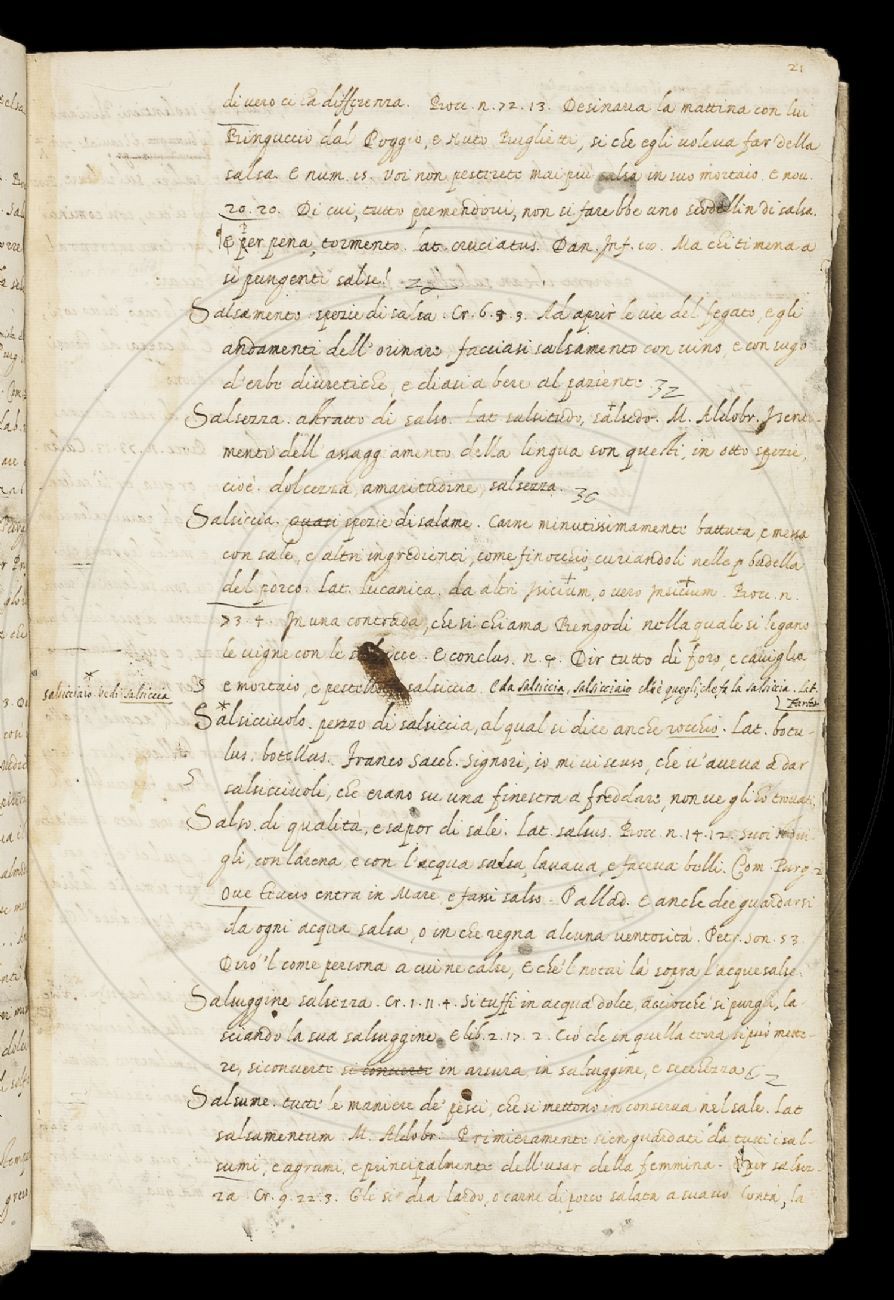 21
di vero ci ha differenza. Bocc. n. 72. 13. Desinava la mattina con lui
Binguccio dal Poggio, e Nuto Buglietti, si che egli voleva far della
salsa. E num. 15. Voi non pesterete mai più salsa in suo mortaio. E nov.
20. 20. Di cui, tutto premendovi, non si farebbe uno scodellin di salsa.
¶ E per pena, tormento. Lat. cruciatus. Dan. Inf. 18. Ma chi ti mena a
si pungenti salse?
Salsamento. spezie di salsa. Cr. 6. 3. 3. Ad aprir le vie del fegato, e gli
andamenti dell'orinare, facciasi salsamento con vino, e con sugo
d'erbe diuretiche, e diasi a bere al paziente. 32
Salsezza. astratto di salso. Lat. salsitudo, salsedo. M. Aldobr. I senti-
menti dell'assaggiamento della lingua son questi, in otto spezie,
cioè. dolcezza, amaritudine, salsezza. 30
Salsiccia. quasi spezie di salame. Carne minutissimamente battuta, e messa
con sale, e altri ingredienti, come finocchio, curiandoli nelle budella
del porco. Lat. lucanica. da altri Isicium, o vero Insicium. Bocc. n.
73. 4. In una contrada, che si chiama Bengodi nella quale si legano
le vigne con le salsicce. E conclus. n. 4. Dir tutto dì foro, e caviglia
e mortaio, e pestello, e salsiccia. E da salsiccia, salsicciaio ch'è quegli, che fa la salsiccia. Lat.
fartor
salsicciaio. vedi salsiccia
Salsicciuolo. pezzo di salsiccia, al qual si dice anche rocchio. Lat. botu-
lus. botellus. Franco Sacch. Signori, io mi vi scuso, che v'aveva a dar
salsicciuoli, che erano su una finestra a freddare, non ve gli ho trovati.
Salso. di qualità, e sapor di sale. Lat. salsus. Bocc. n. 14. 12. suoi stovi-
gli, con la rena, e con l'acqua salsa, lavava, e faceva belli. Com. Purg. 2
Ove Tevero entra in Mare, e fassi salso. Pallad. E anche dee guardarsi
da ogni acqua salsa, o in che regna alcuna ventosità. Petr. son. 53.
Dirò'l come persona a cui ne calse, E che'l notai là sopra l'acque salse.
Salsuggine salsezza. Cr. 1. 11. 4. Si tuffi in acqua dolce, acciocchè si purghi, la-
sciando la sua salsuggine. E lib. 2. 17. 2. Ciò che in quella terra si può mette-
re, si converte si converte in arsura, in salsuggine, e secchezza 62
Salsume. tutte le maniere de' pesci, che si mettono in conserva nel sale. Lat.
salsamentum. M. Aldobr. Primieramente sien guardati da tutti i sal-
sumi, e agrumi, e principalmente dell'usar della femmina. ¶ Per salsez-
za. Cr. 9. 22. 3. Gli si dia lardo, o carne di porco salata a suavo lontà, la